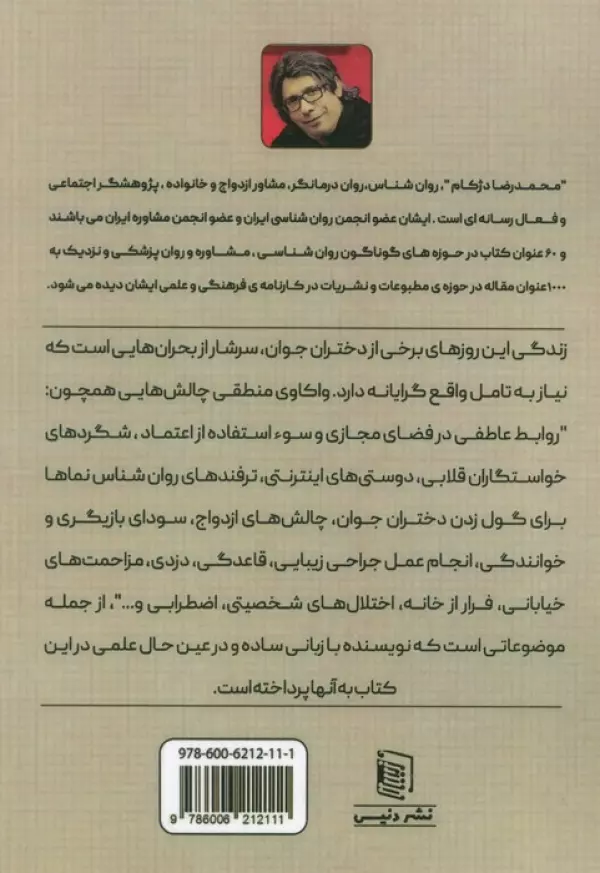 "محمدرضا دژکام"، روان شناس، روان درمانگر، مشاور ازدواج و خانواده ، پژوهشگر اجتماعی
و فعال رسانه ای است . ایشان عضو انجمن روان شناسی ایران و عضو انجمن مشاوره ایران می باشند
و ۶۰ عنوان کتاب در حوزه های گوناگون روان شناسی ، مشاوره و روان پزشکی و نزدیک به
۱۰۰۰عنوان مقاله در حوزه ی مطبوعات و نشریات در کارنامه ی فرهنگی و علمی ایشان دیده می شود.
زندگی این روزهای برخی از دختران جوان، سرشار از بحران‌هایی است که
نیاز به تامل واقع گرایانه دارد. واکاوی منطقی چالش‌هایی همچون:
"روابط عاطفی در فضای مجازی و سوء استفاده از اعتماد ، شگردهای
خواستگاران قلابی، دوستی‌های اینترنتی، ترفندهای روان شناس نماها
برای گول زدن دختران جوان، چالش‌های ازدواج، سودای بازیگری و
خوانندگی، انجام عمل جراحی زیبایی، قاعدگی، دزدی، مزاحمت‌های
خیابانی، فرار از خانه، اختلال‌های شخصیتی، اضطرابی و..."، از جمله
موضوعاتی است که نویسنده با زبانی ساده و در عین حال علمی در این
کتاب به آنها پرداخته است.
978-600-6212-11-1
9 786006 212111
نشر دنیس